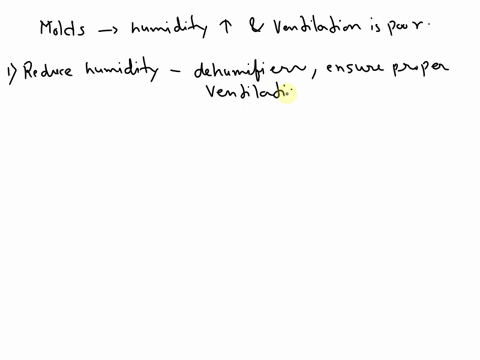 Molds → humidity ↑ & Ventilation is poor.
1) Reduce humidity - dehumifierr, ensure proper
Ventilati